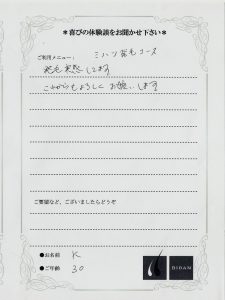 ＊喜びの体験談をお聞かせ下さい＊
ご利用メニュー： ミハツ発毛コース
発毛実感してます
これからもよろしくお願いします
ご要望など、ございましたらどうぞ
●お名前 K
●ご年齢 30
BIDAN